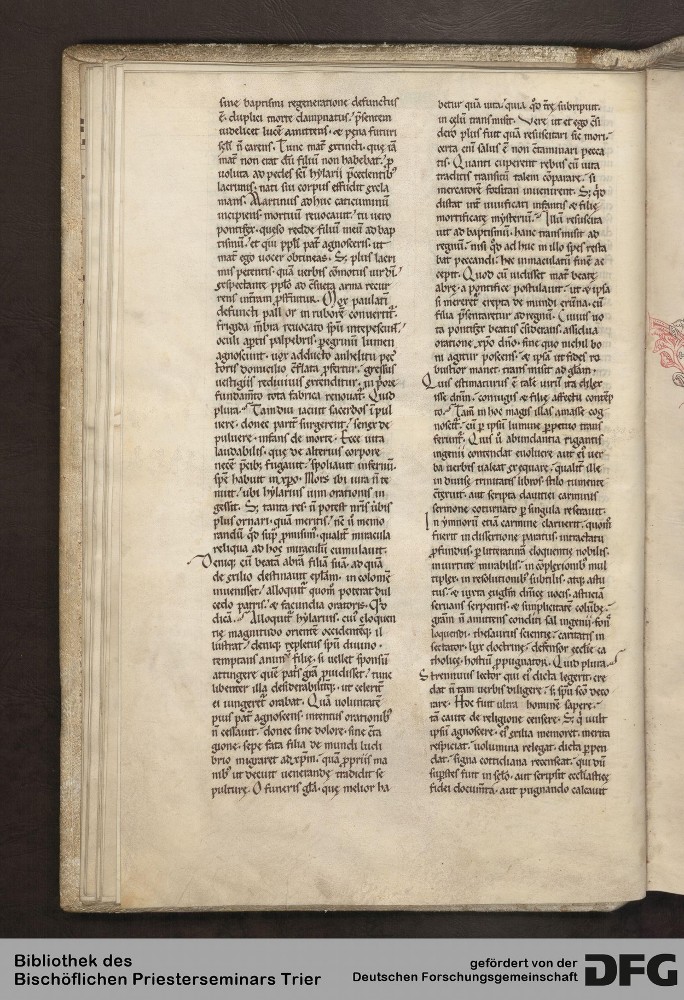 sine baptismi regeneratione defunctus
ē. duplici morte dampnatus. p̄sentem
uidelicet lucē amittens. & pena futuri
sclī n̄ carens. Tunc mat̄ extincti. que iā
mat̄ non erat dū filiū non habebat. p̱
uoluta ad pedes sc̄i hylarii p̄cedentibꝫ
lacrimis. nati sui corpus effudit excla
mans. Martinus adhuc caticuminū
incipiens. mortuū reuocauit. tu uero
pontifex. queso redde filiū meū ad bap
tismū. et qui pp̄li pat̄ agnosceris. ut
mat̄ ego uocer obtineas. S; plus lacri
mis petentis. quā uerbis cōmotus uir dī.
exspectante pp̄lo ad c̄sueta arma recur
rens infraim p̄sternitur. Mox paulati
defuncti pallor in ruborē conuertit̄.
frigida m̄bra reuocato sp̄u intepescunt.
oculi aptis palpebris. p̱egrinū lumen
agnoscunt. uox adducto anhelitu pec
toris domicilio c̄flata p̄fertur. gressus
uestigiis rediuiuus extenditur. in p̄ore
fundam̄to tota fabrica renouat̄. Quid
plura. Tamdiu iacuit sacerdos ī pul
uere. donec parit̄ surgerent. senex de
puluere. infans de morte. Ecce uita
laudabilis. que de alterius corpore
necē p̄cibꝫ fugauit. spoliauit infernū.
spē habuit in xp̄o. Mors ibi uita n̄ te
nuit. ubi hylarius uim orationis in
gessit. S; tanta res. n̄ potest nr̄is ūbis
plus ornari. quā meritis. nē n̄ memo
randū q̄d sup̱ p̄misim. qualit̄ miracula
reliqua ad hoc miraculū cumulauit.
Deniq; cū beatā abrā filiā suā. ad quā
de exilio destinauit epl̄am. in colomē
inuenisset. alloquit̄ quom̄ poterat dul
cedo patris. & facundia oratoris. Quid
dicā. Alloquit̄ hylarius. cuius eloquen
tie magnitudo orientē occidentēq; il
lustrat. deniq; repletus sp̄u diuino.
temptans animū filie. si uellet sponsū
attingere quē pat̄s gr̄a p̄uidisset. tunc
libenter illa desiderabilitēq; ut celerit̄
ei iungeret̄ orabat. Quā uoluntatē
pius pat̄ agnoscens. intentus orationibꝫ
n̄ cessauit. donec sine dolore. sine c̄ta
gione. sepe fata filia de mundi ludi
brio migraret ad xp̄m. quā p̱priis ma
nibꝫ ut decuit uenerande tradidit se
pulture. O funeris gl̄a. que melior ha
betur quā uita. quia q̄d tr̄e subripuit.
in celū transmisit. Vere ut et ego c̄si
dero plus fuit quā resuscitari sic mori.
certa eni salus ē non c̄taminari pecca
tis. Quanti cuperent rebus cū uita
traditis transitū talem cōparare. si
mercatorē facultatū inuenirent. S; q̄d
distat int̄ uiuificati infantis & filie
mortificate mysteriū. Illū resuscita
uit ad baptismū. hanc transmisit ad
regnū. nisi q̄d adhuc in illo spes resta
bat peccandi. hec inmaculatū finē ac
cepit. Quod cū uidisset mat̄ beate
abre. a pontifice postulauit. ut & ipsa
si mereret̄ erepta de mundi erūna. cū
filia p̄sentaretur ad regnū. Cuius uo
ta pontifex beatus c̄siderans. assidua
oratione. xp̄o dn̄o. sine quo nichil bo
ni agitur poscens. & ipsā ut fides ro
bustior manet. transmisit ad gl̄am.
Quis estimaturus ē tale uirū ita dilex
isse dn̄m. coniugis & filie affectu contēp
to. Tam in hoc magis illas amasse cog
noscit̄. cū p̱ ipsū lumine p̱petuo trans
ferunt̄. Quis n̄ abundantia rigantis
ingenii contendat euoluere aut ei uer
ba uerbis ualeat exequare. qualit̄ ille
in diuise trinitatis libros. stilo tumente
c̄gerit. aut scripta dauitici carminis
sermone coturnato p̱ singula reserauit.
In ymnorū etiā carmine claruerit. quom̄
fuerit in dissertione paratus. intractatu
p̱fundus. p̱ litteraturā eloquentie nobilis.
inuirtute mirabilis. in cōplexionibꝫ mul
tiplex. in resolutionibꝫ subtilis. atq; astu
tus. & iuxta euglm̄ dn̄ice uocis. astuciā
seruans serpentis. & simplicitatē colūbe.
gr̄am n̄ amittens. conditi sal ingenii. fons
loquendi. thesaurus scientie. caritatis in
sectator. lux doctrine. defensor ecclie ca
tholice. hostiū p̱pugnator. Quid plura.
Strennuus lector qui ei dicta legerit. cre
dat n̄ tam uerbis diligere. s; sp̄u sc̄o deco
rare. Hoc fuit ultra hominē sapere.
tā caute de religione censere. S; q̄ uult
ipsū agnoscere. ei exilia memoret. merita
respiciat. uolumina relegat. dicta p̱pen
dat. signa cottidiana recenseat. qui dū
sup̱stes fuit in sclō. aut scripsit ecclīastice
fidei docum̄ta. aut pugnando calcauit
Bibliothek des
Bischöflichen Priesterseminars Trier
gefördert von der
Deutschen Forschungsgemeinschaft
DFG